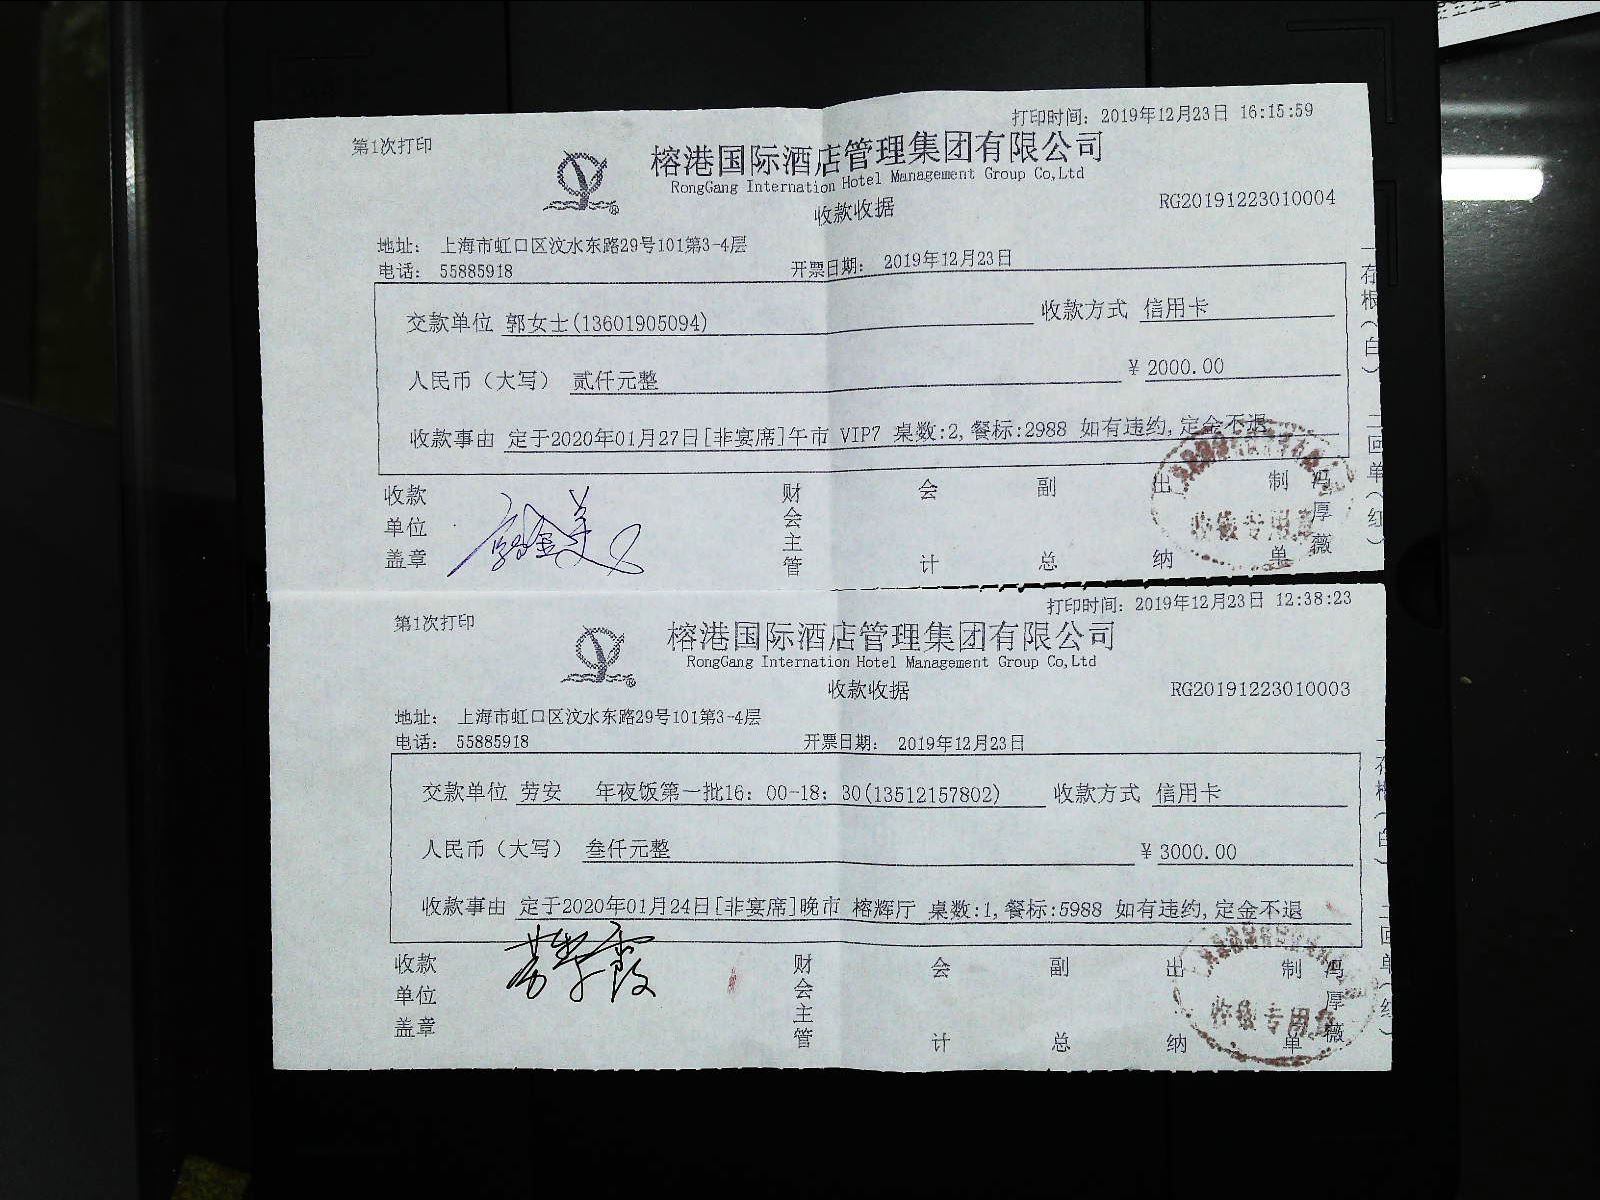 第1次打印
打印时间: 2019年12月23日 16:15:59
榕港国际酒店管理集团有限公司
RongGang Internation Hotel Management Group Co,Ltd
收款收据
RG20191223010004
地址: 上海市虹口区汶水东路29号101第3-4层
电话: 55885918
开票日期: 2019年12月23日
交款单位 郭女士(13601905094) 收款方式 信用卡
人民币（大写） 贰仟元整 ¥2000.00
收款事由 定于2020年01月27日[非宴席]午市 VIP7 桌数:2,餐标:2988 如有违约,定金不退
一存根(白) 二回单(红)
收款单位盖章 财会主管 会计 副总 出纳 制单 冯厚薇
收银专用章
第1次打印
打印时间: 2019年12月23日 12:38:23
榕港国际酒店管理集团有限公司
RongGang Internation Hotel Management Group Co,Ltd
收款收据
RG20191223010003
地址: 上海市虹口区汶水东路29号101第3-4层
电话: 55885918
开票日期: 2019年12月23日
交款单位 劳安 年夜饭第一批16: 00-18: 30(13512157802) 收款方式 信用卡
人民币（大写） 叁仟元整 ¥3000.00
收款事由 定于2020年01月24日[非宴席]晚市 榕辉厅 桌数:1,餐标:5988 如有违约,定金不退
收款单位盖章 财会主管 会计 副总 出纳 制单 冯厚薇
收银专用章